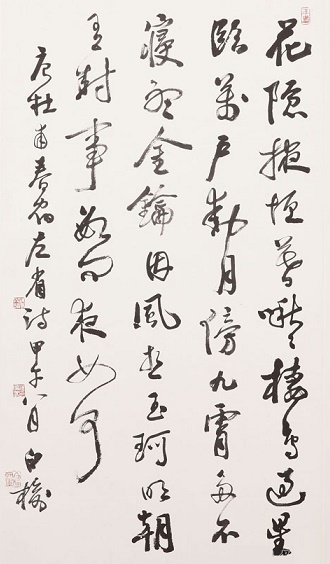 花隱掖垣暮啾々棲鳥過星
臨萬戶動月傍九霄多不
寢聽金鑰因風想玉珂明朝
有封事數問夜如何
唐杜甫春宿左省詩甲午八月白